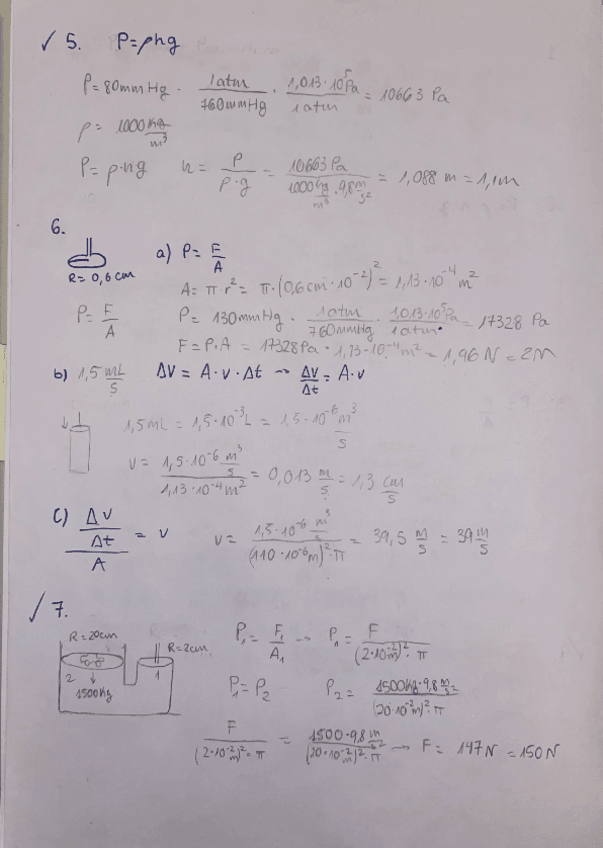 ✓ 5. P=ρhg
P=80mmHg · 1atm/760mmHg · 1,013·10⁵Pa/1atm = 10663 Pa
ρ= 1000 kg/m³
P= ρ·h·g h= P/ρ·g = 10663Pa/1000 kg/m³ · 9,8 m/s² = 1,088 m = 1,1m
6.
R= 0,6 cm
a) P= F/A
A= π·r² = π·(0,6cm·10⁻²)² = 1,13·10⁻⁴ m²
P= F/A P= 130mmHg · 1atm/760mmHg · 1,013·10⁵Pa/1atm = 17328 Pa
F=P·A = 17328Pa · 1,13·10⁻⁴m² = 1,96 N = 2N
b) 1,5 mL/s ΔV = A·v·Δt → ΔV/Δt = A·v
1,5mL = 1,5·10⁻³L = 1,5·10⁻⁶ m³/s
v= 1,5·10⁻⁶ m³/s / 1,13·10⁻⁴m² = 0,013 m/s = 1,3 cm/s
c) ΔV/Δt / A = v v= 1,5·10⁻⁶ m³/s / (110·10⁻⁶m)²·π = 39,5 m/s = 39 m/s
✓ 7.
R=20cm R=2cm
2 1
1500kg
P₁= F₁/A₁ → P₁= F/(2·10⁻²m)²·π
P₁=P₂ P₂= 1500kg·9,8 m/s² / (20·10⁻²m)²·π
F/(2·10⁻²m)²·π = 1500·9,8 m/s² / (20·10⁻²m)²·π → F= 147N = 150N